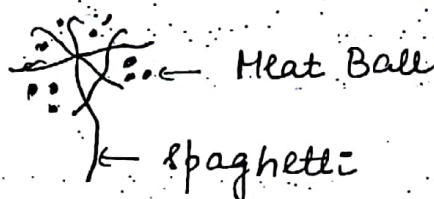 Meat Ball
spaghetti